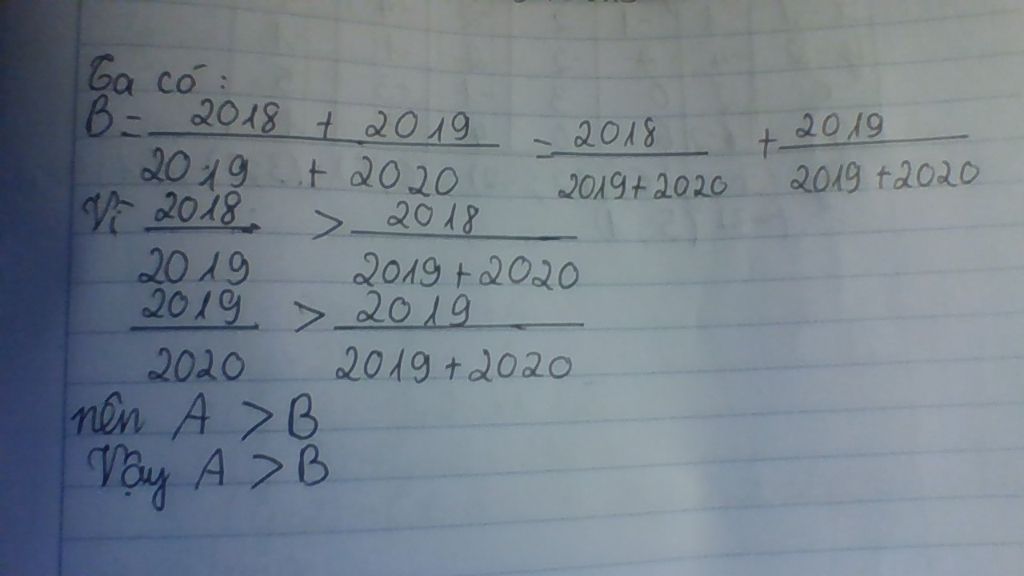 Ta có:
B = (2018 + 2019)/(2019 + 2020) = 2018/(2019+2020) + 2019/(2019+2020)
Vì 2018/2019 > 2018/(2019+2020)
2019/2020 > 2019/(2019+2020)
nên A > B
Vậy A > B